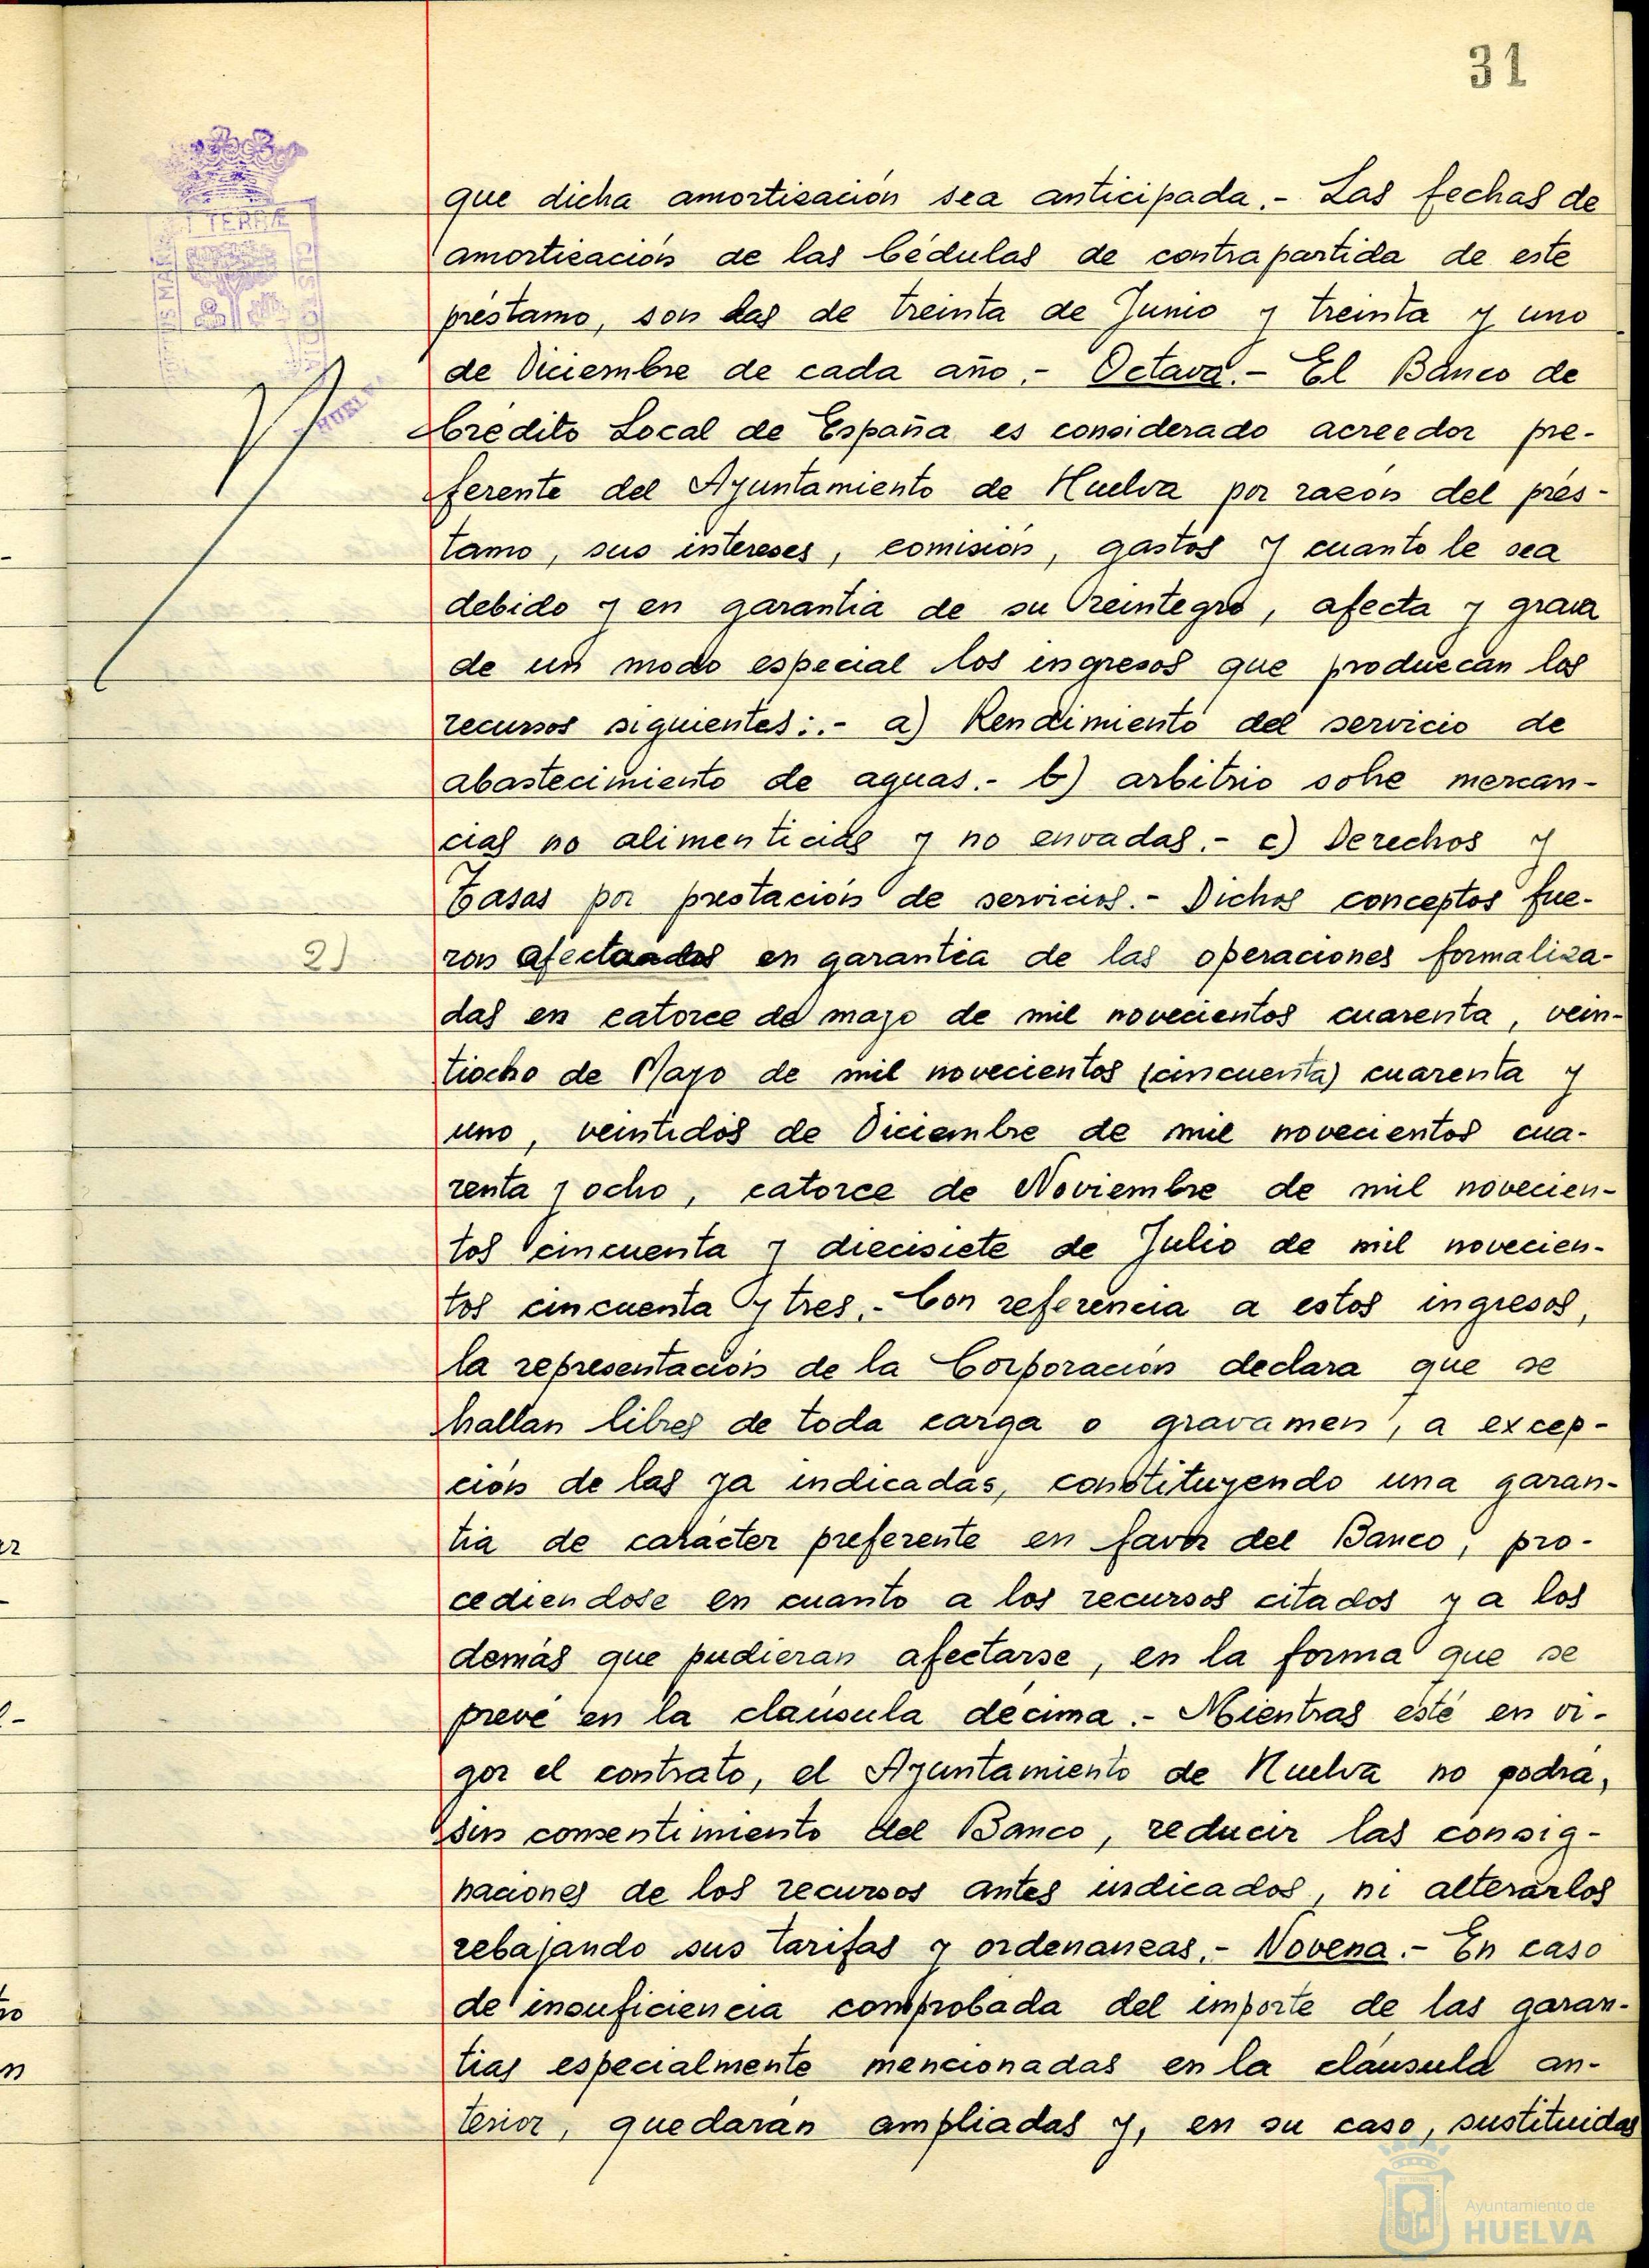 31
que dicha amortización sea anticipada.- Las fechas de
amortización de las Cédulas de contrapartida de este
préstamo, son las de treinta de Junio y treinta y uno
de Diciembre de cada año.- Octava.- El Banco de
Crédito Local de España es considerado acreedor pre-
ferente del Ayuntamiento de Huelva por razón del prés-
tamo, sus intereses, comisión, gastos y cuanto le sea
debido y en garantia de su reintegro, afecta y grava
de un modo especial los ingresos que produzcan los
recursos siguientes:.- a) Rendimiento del servicio de
abastecimiento de aguas.- b) arbitrio sobre mercan-
cias no alimenticias y no envadas.- c) Derechos y
Tasas por prestación de servicios.- Dichos conceptos fue-
2)
ron afectandos en garantia de las operaciones formaliza-
das en catorce de mayo de mil novecientos cuarenta, vein-
tiocho de Mayo de mil novecientos (cincuenta) cuarenta y
uno, veintidós de Diciembre de mil novecientos cua-
renta y ocho, catorce de Noviembre de mil novecien-
tos cincuenta y diecisiete de Julio de mil novecien-
tos cincuenta y tres.- Con referencia a estos ingresos,
la representación de la Corporación declara que se
hallan libres de toda carga o gravamen, a excep-
ción de las ya indicadas, constituyendo una garan-
tia de carácter preferente en favor del Banco, pro-
cediendose en cuanto a los recursos citados y a los
demás que pudieran afectarse, en la forma que se
prevé en la claúsula décima.- Mientras esté en vi-
gor el contrato, el Ayuntamiento de Huelva no podrá,
sin consentimiento del Banco, reducir las consig-
naciones de los recursos antes indicados, ni alterarlos
rebajando sus tarifas y ordenanzas.- Novena.- En caso
de insuficiencia comprobada del importe de las garan-
tias especialmente mencionadas en la cláusula an-
terior, quedarán ampliadas y, en su caso, sustituidas
TERRÆ
CUSTODIA
HUELVA
Ayuntamiento de
HUELVA